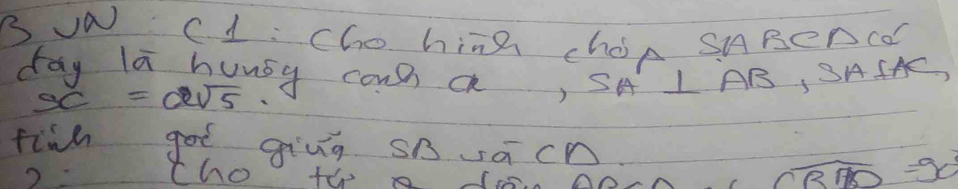 B VN : C1 : Cho hình chóp SABCD có
đáy là hvuông cạnh a , SA ⊥ AB, SA ⊥ AC,
SC = a√5.
tính góc giữa SB và CD.
2. Cho tứ diện ABCD